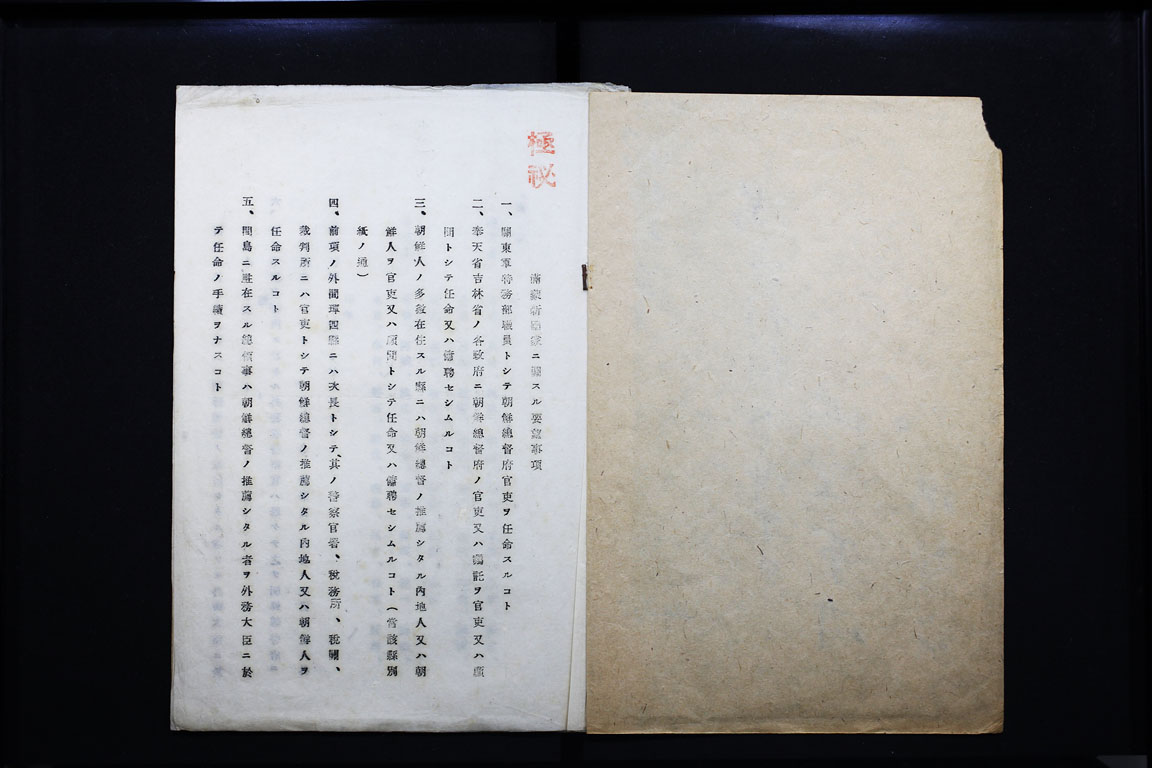 極秘
滿蒙新國家ニ關スル要望事項
一、關東軍特務部職員トシテ朝鮮總督府官吏ヲ任命スルコト
二、奉天省吉林省ノ各政府ニ朝鮮總督府ノ官吏又ハ囑託ヲ官吏又ハ顧
問トシテ任命又ハ傭聘セシムルコト
三、朝鮮人ノ多數在住スル縣ニハ朝鮮總督ノ推薦シタル內地人又ハ朝
鮮人ヲ官吏又ハ顧問トシテ任命又ハ傭聘セシムルコト（當該縣別
紙ノ通）
四、前項ノ外間琿四縣ニハ次長トシテ、其ノ警察官署、稅務所、稅關、
裁判所ニハ官吏トシテ朝鮮總督ノ推薦シタル內地人又ハ朝鮮人ヲ
任命スルコト
五、間島ニ駐在スル總領事ハ朝鮮總督ノ推薦シタル者ヲ外務大臣ニ於
テ任命ノ手續ヲナスコト